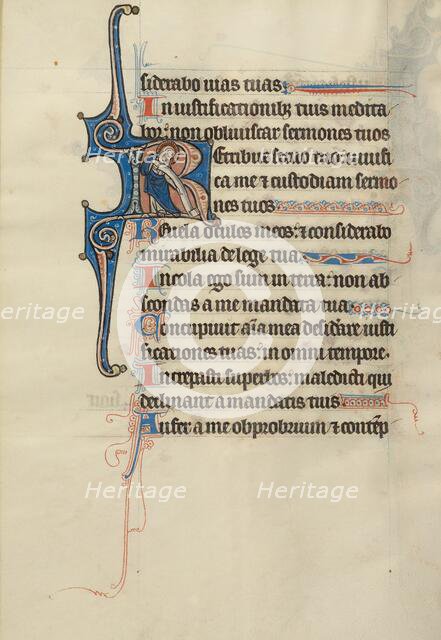 siderabo uias tuas
In iustificationibz tuis medita
bor: non obliuiscar sermones tuos
Retribue seruo tuo: uiuifi
ca me ⁊ custodiam sermo
nes tuos
Reuela oculos meos: ⁊ considerabo
mirabilia de lege tua
Incola ego sum in terra: non ab
scondas a me mandata tua
Concupiuit aīa mea desid'are iusti
ficationes tuas: in omni tempore.
Increpasti superbos: maledicti qui
declinant a mandatis tuis
Aufer a me obprobrium ⁊ contēp
Heritage Heritage
Heritage Heritage
Heritage Heritage
Heritage Heritage